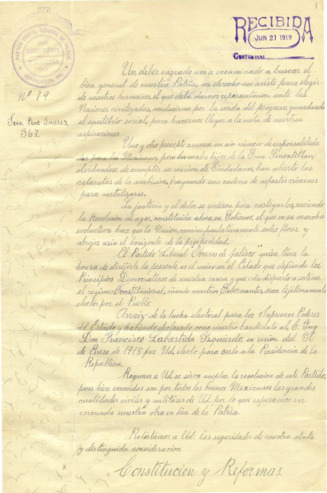 RECIBIDA
JUN 21 1919
Nº 79
Un deber sagrado nos a encaminado a buscar el
bien general de nuestra Patria, un derecho nos asiste para elegir
de nuestros hermanos el que deba darnos representación ante las
Naciones civilizadas, conducirnos por la senda del progreso, guardando
el equilibrio social, para hacernos llegar a la meta de nuestras
aspiraciones.
Uno y otro precepto asumen un sin número de responsabilidades
para los Mexicanos
olvidandose de cumplir su misión de Ciudadanos, han abierto las
cataratas de la ambición, fraguando una cadena de
La justicia y el deber se unieron para castigarlos naciendo
la Revolución de ayer, constituída ahora en Gobierno, el que en su marcha
evolutiva hace que la Nación camine paulatinamente entre flores y
abrojos asia el horizonte de la prosperidad.
El Partido Liberal Obrero de Jalisco quien tiene la
honra de dirigirle la presente es el unico en el Estado que defiende los
Principios Democráticos de nuestra causa y que esta dispuesto a sostener
el regimen Constitucional, cuando nuestros Gobernantes, sean legitimamente
electos por el Pueblo.
A raiz de la lucha electoral para los Supremos Poderes
del Estado y habiendo declarado como nuestro candidato al C. Ing.
Don Francisco Labastida Izquierdo en sesion del 30
de Enero de 1918 fue Ud. electo para
la Presidencia de la
República.
Rogamos a Ud. se sirva aceptar la resolución de este Partido,
pues bien conocidas son por todos los buenos Mexicanos las grandes
cualidades civiles y militares de Ud. por lo que esperamos ver
coronada nuestra obra en bien de la Patria.
Protestamos a Ud. las seguridades de nuestra atenta
y distinguida consideración
Constitución y Reformas.